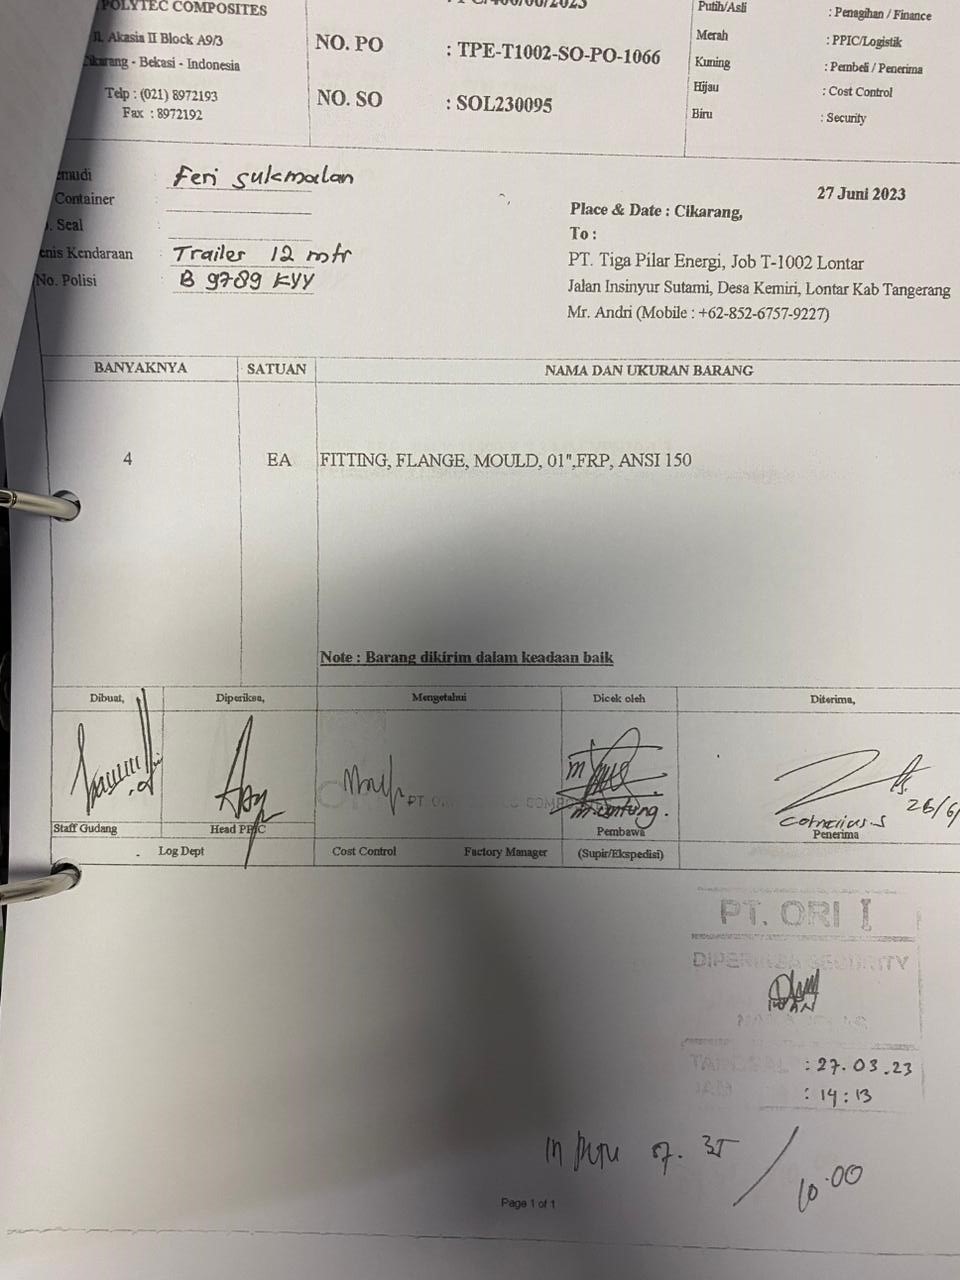 POLYTEC COMPOSITES
Akasia II Block A9/3
Cikarang - Bekasi - Indonesia
Telp : (021) 8972193
Fax : 8972192
NO. PO : TPE-T1002-SO-PO-1066
NO. SO : SOL230095
Putih/Asli : Penagihan / Finance
Merah : PPIC/Logistik
Kuning : Pembeli / Penerima
Hijau : Cost Control
Biru : Security
emudi Feri Sukmalan
Container
. Seal
enis Kendaraan Trailer 12 mtr
No. Polisi B 9789 KYY
27 Juni 2023
Place & Date : Cikarang,
To :
PT. Tiga Pilar Energi, Job T-1002 Lontar
Jalan Insinyur Sutami, Desa Kemiri, Lontar Kab Tangerang
Mr. Andri (Mobile : +62-852-6757-9227)
BANYAKNYA SATUAN NAMA DAN UKURAN BARANG
4 EA FITTING, FLANGE, MOULD, 01",FRP, ANSI 150
Note : Barang dikirim dalam keadaan baik
Dibuat, Diperiksa, Mengetahui Dicek oleh Diterima,
26/6/
Cornelius.S
Staff Gudang Head PPIC Pembawa Penerima
Log Dept Cost Control Factory Manager (Supir/Ekspedisi)
PT. ORI I
DIPERIKSA SECURITY
TANGGAL : 27.03.23
JAM : 14:13
10.00
Page 1 of 1